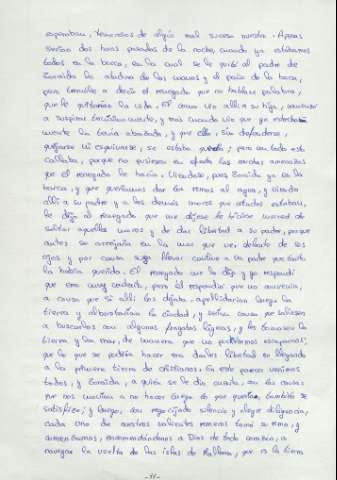 esperaban, temerosos de algún mal suceso nuestro. Apenas
serían dos horas pasadas de la noche, cuando ya estábamos
todos en la barca, en la cual se le quitó al padre de
Zoraida la atadura de las manos y el paño de la boca,
pero tornole a decir el renegado que no hablase palabra,
que le quitarían la vida. Él como vio allí a su hija, comenzó
a suspirar ternísimamente, y más cuando vio que yo estrecha-
mente la tenía abrazada, y que ella, sin defenderse,
quejarse ni esquivarse, se estaba queda; pero con todo esto
callaba, porque no pusiesen en efecto las muchas amenazas
que el renegado le hacía. Viéndose, pues Zoraida ya en la
barca, y que queríamos dar los remos al agua, y viendo
allí a su padre y a los demás moros que atados estaban,
le dijo al renegado que me dijese le hiciese merced de
soltar aquellos moros y de dar libertad a su padre, porque
antes se arrojaría en la mar que ver delante de sus
ojos y por causa suya llevar cautivo a un padre que tanto
la había querido. El renegado me lo dijo y yo respondí
que era muy contento, pero él respondió que no convenía,
a causa que si allí los dejaban, apellidarían luego la
tierra y alborotarían la ciudad, y serían causa que saliesen
a buscarlos con algunas fragatas ligeras, y les tomasen la
tierra y la mar, de manera que no pudiésemos escaparnos;
que lo que se podría hacer era darles libertad en llegando
a la primera tierra de cristianos. En este parecer venimos
todos, y Zoraida, a quien se le dio cuenta, con las causas
que nos movían a no hacer luego lo que quería, también se
satisfizo; y luego, con regocijado silencio y alegre diligencia,
cada uno de nuestros valientes remeros tomó su remo, y
comenzamos, encomendándonos a Dios de todo corazón, a
navegar la vuelta de las islas de Mallorca, que es la tierra